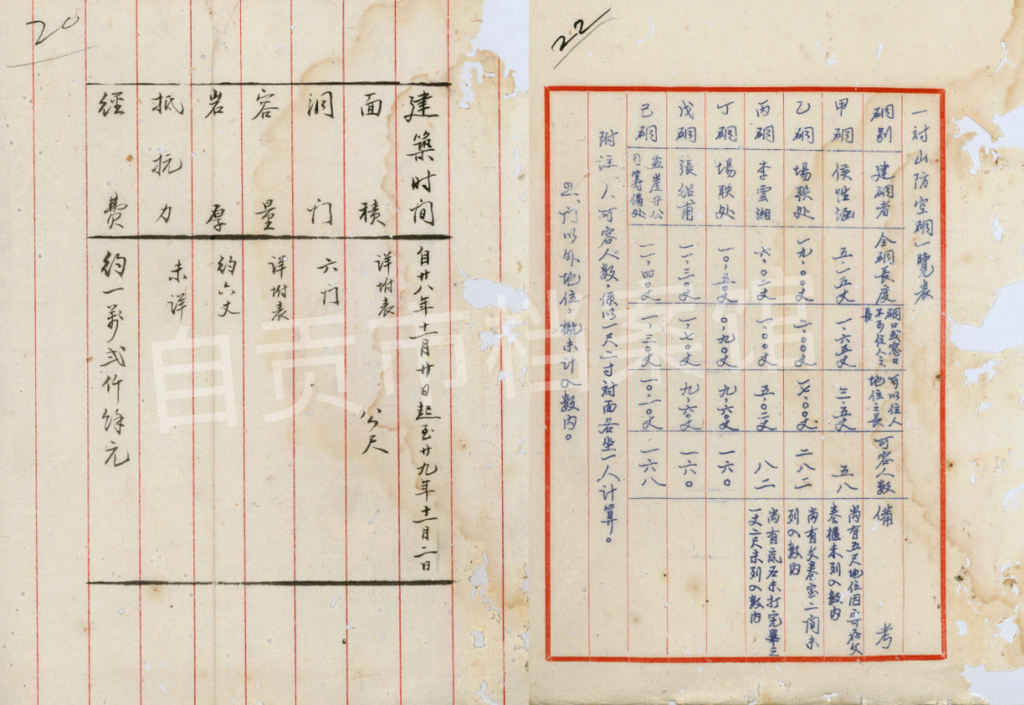 20
建築时间 自廿八年十一月廿日起至廿九年十一月二日
面積 詳附表 公尺
洞门 六门
容量 詳附表
岩厚 約六丈
抵抗力 未详
經費 約一萬弍仟餘元
22
一対山防空硐一覽表
硐别 建硐者 全硐長度 硐口或窓口不可住人之長 可以住人地位之長 可容人数 備考
甲硐 侯性涵 五·一五丈 一·六五丈 三·五丈 五八 尚有五尺地位因
卷櫃未列入数内
乙硐 場联处 一九·〇〇丈 二·〇〇丈 一七·〇〇丈 二八二 尚有文卷室二間未
列入数内
丙硐 李雲湘 六·〇二丈 一·〇〇丈 五·〇二丈 八二 尚有底石未打完畢之
一丈二尺未列入数内
丁硐 場联处 一〇·五〇丈 〇·九〇丈 九·六〇丈 一六〇
戊硐 張绍甫 一一·三〇丈 一·七〇丈 九·六〇丈 一六〇
己硐 盐崖井公司筹備处 一一·四〇丈 一·三〇丈 一〇·一〇丈 一六八
附注 1、可容人数，係以一尺二寸対面各坐一人计算。
2、门以外地位，概未计入数内。
自贡市档案馆